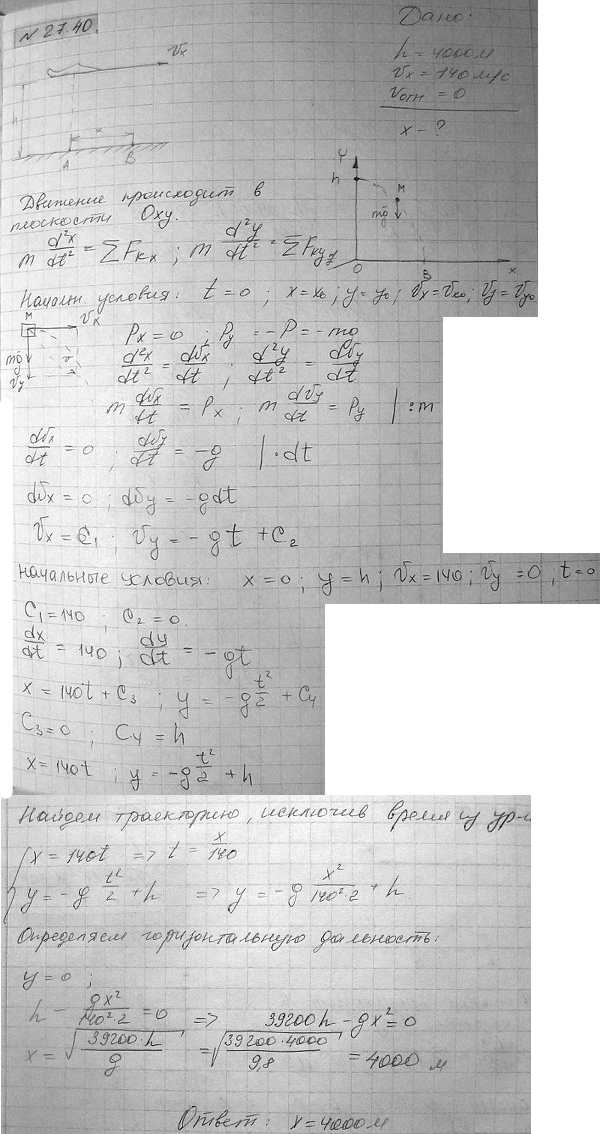 № 27.40.
Дано:
h = 4000 м
Vx = 140 м/с
Vотн = 0
x - ?
Vx
h
x
A B
Y
h
M
mg
O B x
Движение происходит в
плоскости Oxy.
m d²x/dt² = ΣFkx ; m d²y/dt² = ΣFky
Начальн условия: t = 0 ; x = x₀ ; y = y₀ ; Vx = Vx₀ ; Vy = Vy₀
M Vx
mg
Vy
Px = 0 ; Py = -P = -mg
d²x/dt² = dVx/dt ; d²y/dt² = dVy/dt
m dVx/dt = Px ; m dVy/dt = Py | :m
dVx/dt = 0 ; dVy/dt = -g | · dt
dVx = 0 ; dVy = -gdt
Vx = C₁ ; Vy = -gt + C₂
начальные условия: x = 0 ; y = h ; Vx = 140 ; Vy = 0 , t = 0
C₁ = 140 ; C₂ = 0.
dx/dt = 140 ; dy/dt = -gt
x = 140t + C₃ ; y = -g t²/2 + C₄
C₃ = 0 ; C₄ = h
x = 140t ; y = -g t²/2 + h
Найдем траекторию, исключив время из ур-и
x = 140t => t = x/140
y = -g t²/2 + h => y = -g x²/140²·2 + h
Определяем горизонтальную дальность:
y = 0 ;
h - gx²/140²·2 = 0 => 39200h - gx² = 0
x = √39200·h/g = √39200·4000/9,8 = 4000 м
Ответ: x = 4000 м